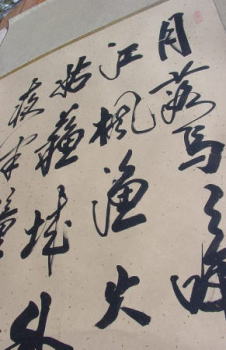 月落烏啼
江楓漁火
姑蘇城外
夜半鐘